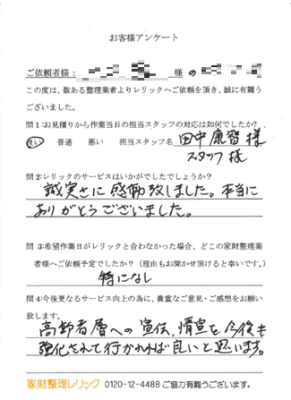 お客様アンケート
ご依頼者様： 様
この度は、数ある整理業者よりレリックへご依頼を頂き、誠に有難う
ございました。
問1:お見積りから作業当日の担当スタッフの対応は如何でしたか？
良い 普通 悪い 担当スタッフ名 田中康智様
スタッフ様
問2:レリックのサービスはいかがでしたでしょうか？
誠実さに感動致しました。本当に
ありがとうございました。
問3:希望作業日がレリックと合わなかった場合、どこの家財整理業
者様へご依頼予定でしたか？（理由もお聞かせ頂けると幸いです。）
特になし
問4:今後更なるサービス向上の為に、貴重なご意見・ご感想をお願い
致します。
高齢者層への宣伝、情宣を今後も
強化されて行かれれば良いと思います。
家財整理レリック 0120-12-4488 ご協力有難うございます。